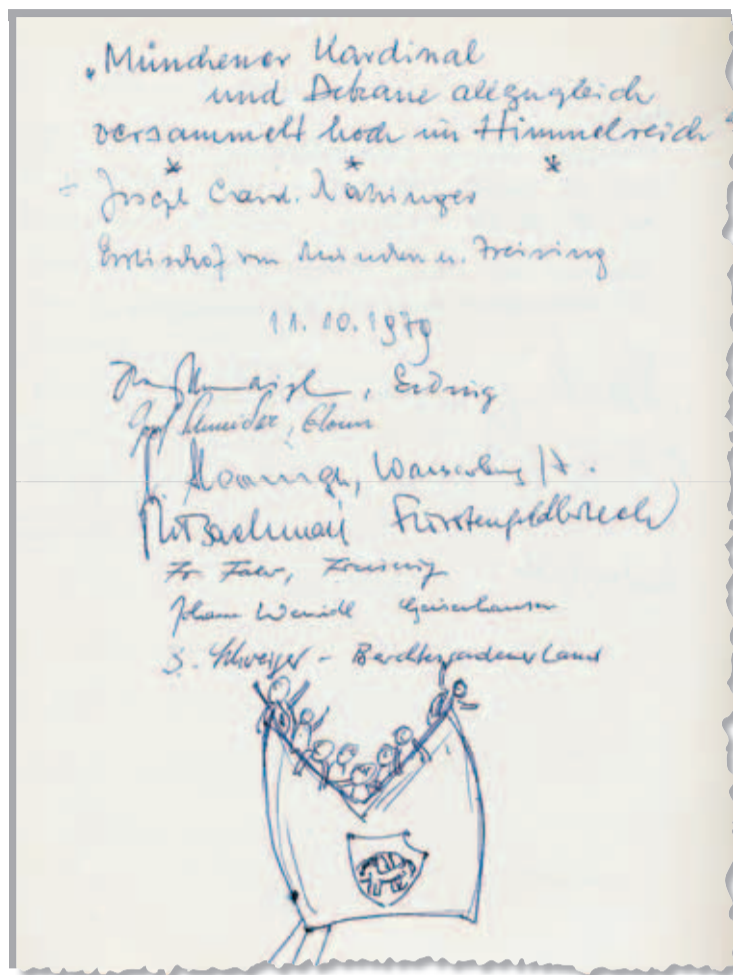 „Münchener Kardinal
und Dekane allzugleich
versammelt hoch im Himmelreich“
* * *
Joseph Card. Ratzinger
Erzbischof von München u. Freising
11.10.1979
, Erding
Schneider, Glonn
, Wasserburg / I.
Fürstenfeldbruck
Fr. , Freising
Johann Geisenhausen
S. Schweiger – Berchtesgadener Land